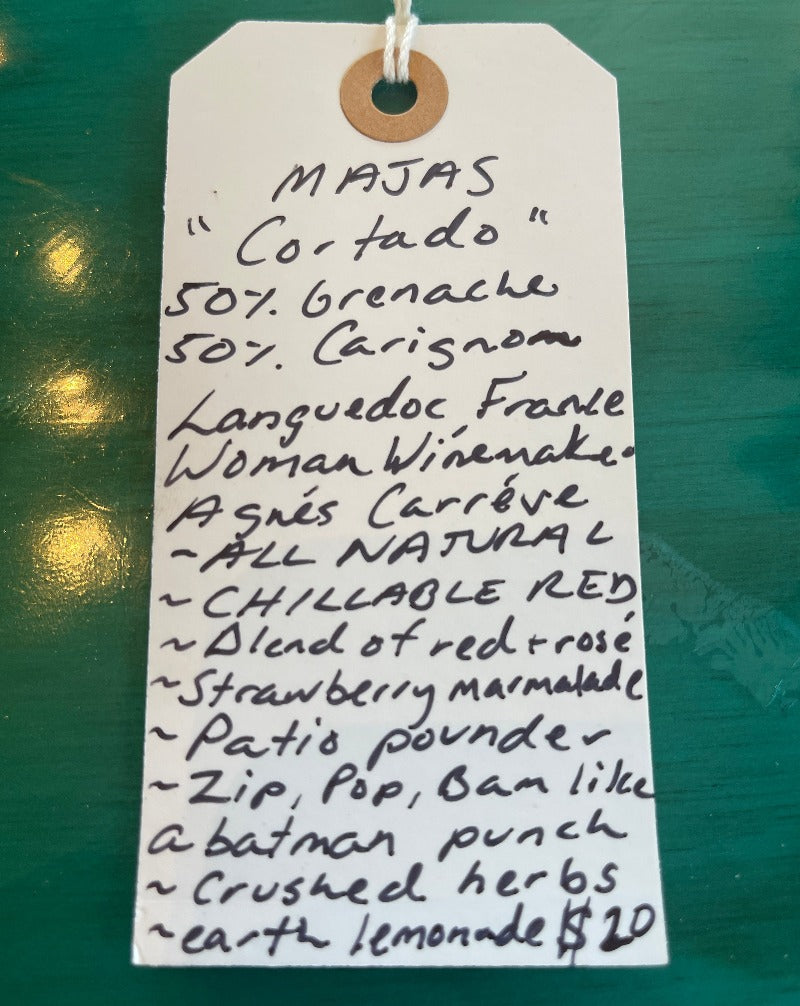 MAJAS
"Cortado"
50% Grenache
50% Carignan
Languedoc, France
Woman Winemaker
Agnés Carréve
~ALL NATURAL
~CHILLABLE RED
~Blend of red + rosé
~Strawberry marmalade
~Patio pounder
~Zip, Pop, Bam like
a batman punch
~Crushed herbs
~earth lemonade $20